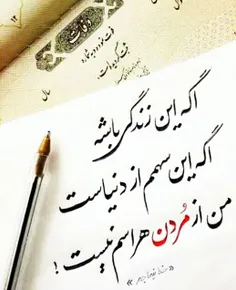 سال
اگه این زندگی باشه
اگه این سهمم از دنیاست
من از مُردن هراسم نیست !